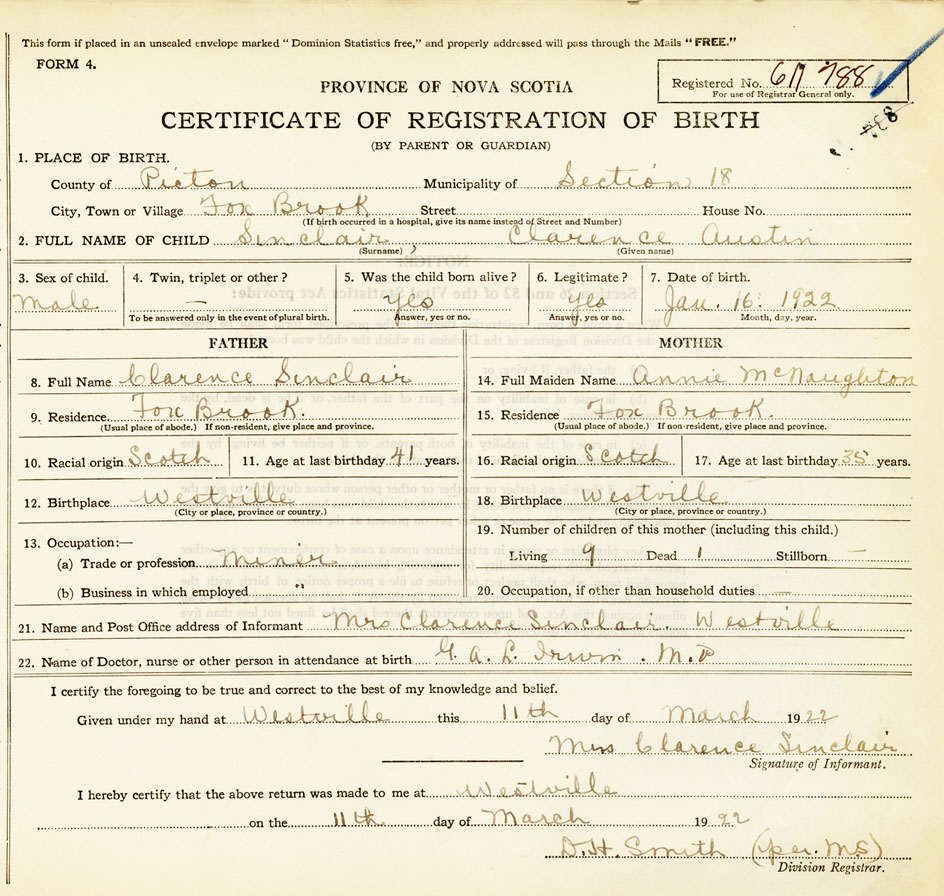 This form if placed in an unsealed envelope marked "Dominion Statistics free," and properly addressed will pass through the Mails "FREE."
FORM 4.
Registered No. 611 788
For use of Registrar General only.
PROVINCE OF NOVA SCOTIA
CERTIFICATE OF REGISTRATION OF BIRTH
(BY PARENT OR GUARDIAN)
1. PLACE OF BIRTH.
County of Picton Municipality of Section 18
City, Town or Village Fox Brook Street House No.
(If birth occurred in a hospital, give its name instead of Street and Number)
2. FULL NAME OF CHILD Sinclair, Clarence Austin
(Surname) (Given name)
3. Sex of child. 4. Twin, triplet or other? 5. Was the child born alive? 6. Legitimate? 7. Date of birth.
Male — yes yes Jan. 16. 1922
To be answered only in the event of plural birth. Answer, yes or no. Answer, yes or no. Month, day, year.
FATHER MOTHER
8. Full Name Clarence Sinclair 14. Full Maiden Name Annie McNaughton
9. Residence Fox Brook. 15. Residence Fox Brook.
(Usual place of abode.) If non-resident, give place and province. (Usual place of abode.) If non-resident, give place and province.
10. Racial origin Scotch 11. Age at last birthday 41 years. 16. Racial origin Scotch 17. Age at last birthday 35 years.
12. Birthplace Westville 18. Birthplace Westville
(City or place, province or country.) (City or place, province or country.)
13. Occupation:— 19. Number of children of this mother (including this child.)
(a) Trade or profession Miner Living 9 Dead 1 Stillborn —
(b) Business in which employed " 20. Occupation, if other than household duties —
21. Name and Post Office address of Informant Mrs Clarence Sinclair. Westville
22. Name of Doctor, nurse or other person in attendance at birth G. A. L. Irwin. M.D
I certify the foregoing to be true and correct to the best of my knowledge and belief.
Given under my hand at Westville this 11th day of March 1922
Mrs Clarence Sinclair
Signature of Informant.
I hereby certify that the above return was made to me at Westville
on the 11th day of March 1922
D. H. Smith (per. MS)
Division Registrar.